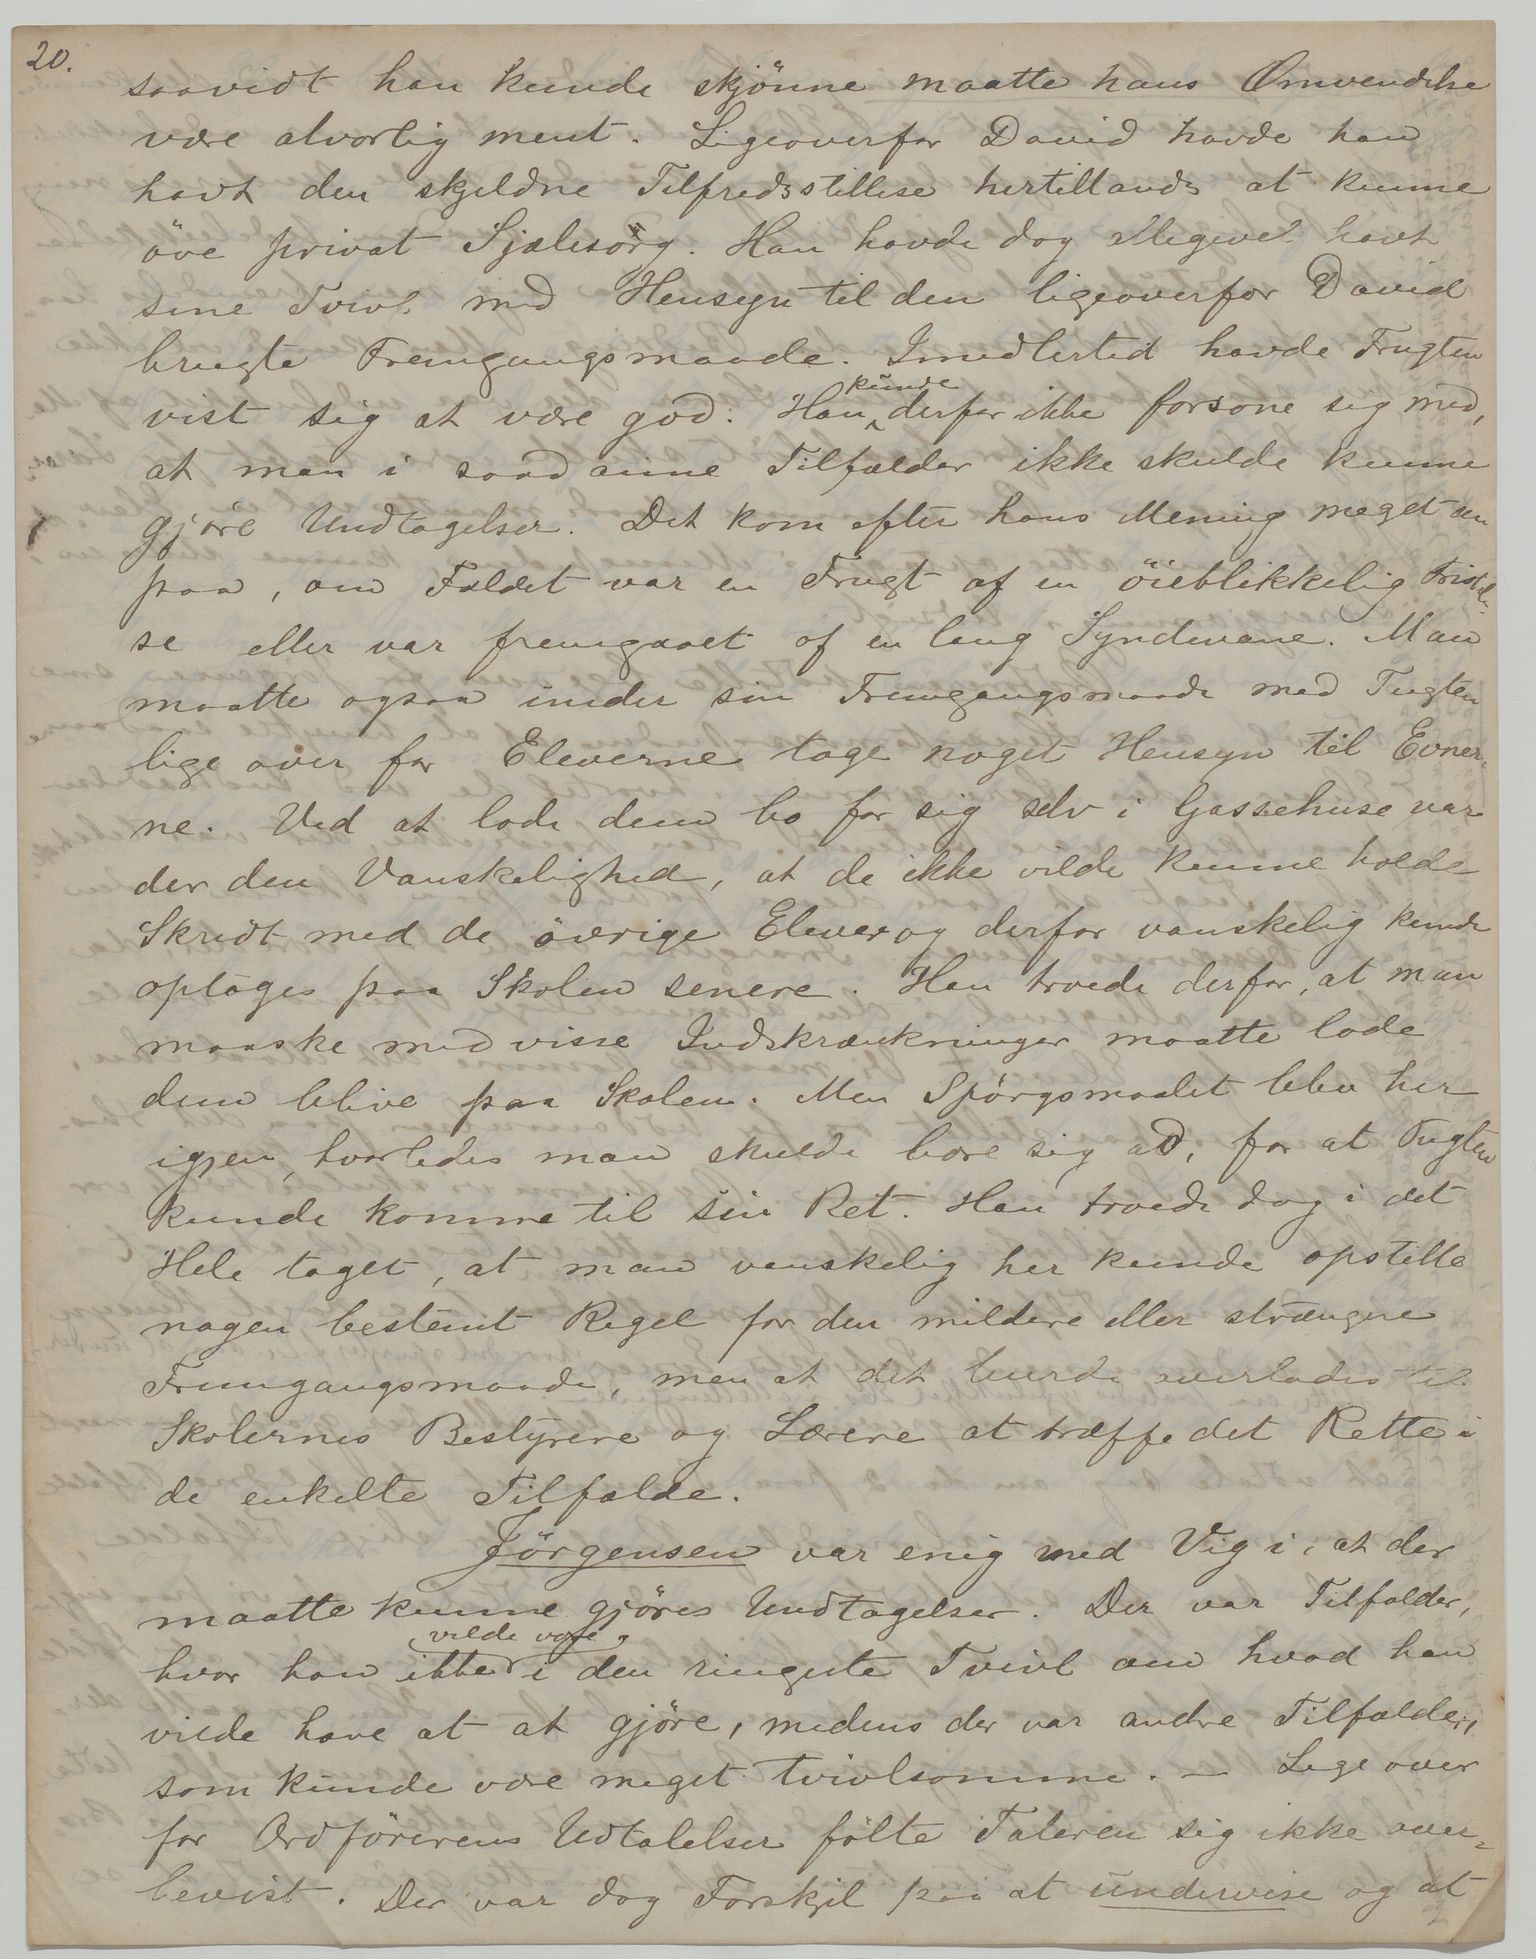 20.
saavidt han kunde skjönne maatte hans Omvendelse
være alvorlig ment. Ligeoverfor David havde han
havt den skjeldne Tilfredsstillelse hertillands at kunne
öve privat Sjælesörg. Han havde dog alligevel havt
sine Tvivl med Hensyn til den ligeoverfor David
brugte Fremgangsmaade. Imidlertid havde Frugten
vist sig at være god. Han kunde derfor ikke forsone sig med,
at man i saadanne Tilfælder ikke skulde kunne
gjöre Undtagelser. Det kom efter hans Mening meget an
paa, om Faldet var en Frugt af en öieblikkelig Fristel-
se eller var fremgaaet af en lang Syndevane. Man
maatte ogsaa under sin Fremgangsmaade med Tugten
lige over for Eleverne tage noget Hensyn til Evner-
ne. Ved at lade dem bo for sig selv i Gassehuse var
der den Vanskelighed, at de ikke vilde kunne holde
Skridt med de övrige Elever og derfor vanskelig kunde
optages paa Skolen senere. Han troede derfor, at man
maaske med visse Indskrænkninger maatte lade
dem blive paa Skolen. Men Spörgsmaalet blev her
igjen, hvorledes man skulde bære sig ad, for at Tugten
kunde komme til sin Ret. Han troede dog i det
Hele taget, at man vanskelig her kunde opstille
nogen bestemt Regel for den mildere eller strængere
Fremgangsmaade, men at det burde overlades til
Skolernes Bestyrere og Lærere at træffe det Rette i
de enkelte Tilfælde.
Jörgensen var enig med Vig i, at der
maatte kunne gjöres Undtagelser. Der var Tilfælder,
hvor han ikke vilde være i den ringeste Tvivl om hvad han
vilde have at at gjöre, medens der var andre Tilfælder,
som kunde være meget tvivlsomme. – Lige over
for Ordförerens Udtalelser fölte Taleren sig ikke over-
bevist. Der var dog Forskjel paa at undervise og at